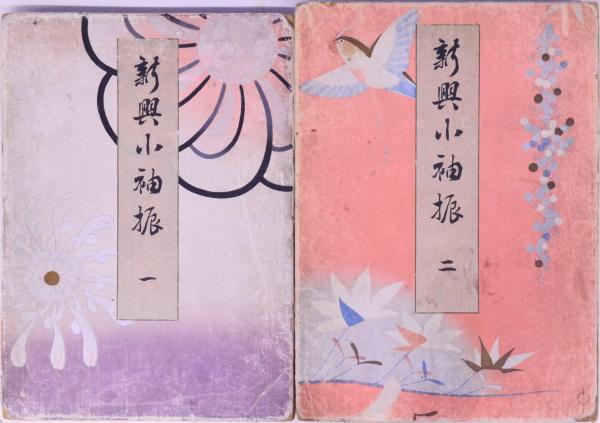 新興小袖振 一
新興小袖振 二